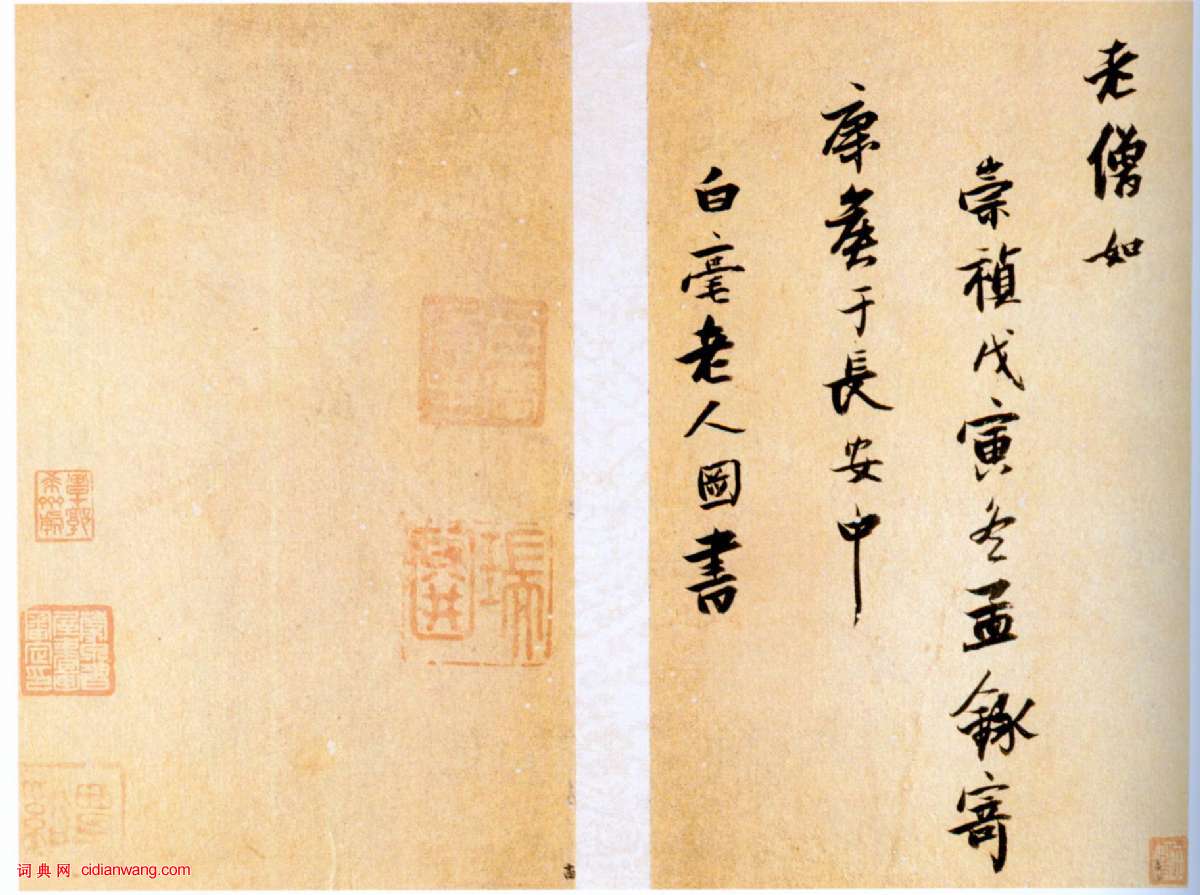 老僧如
崇禎戊寅冬孟錄寄
康矦于長安中
白毫老人圖書
词典网 cidianwang.com